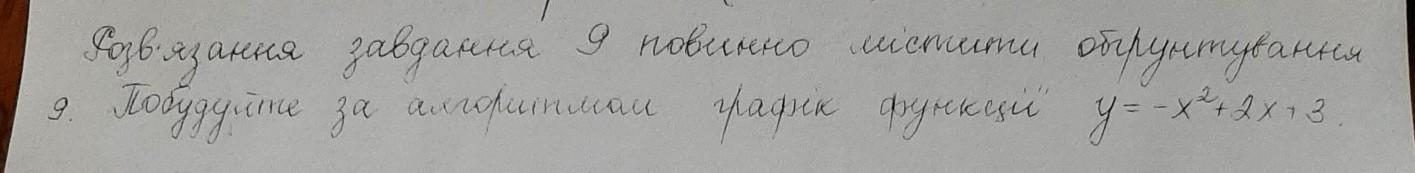 Розв'язання завдання 9 повинно містити обгрунтування
9. Побудуйте за алгоритмом графік функції y = -x²+2x+3.